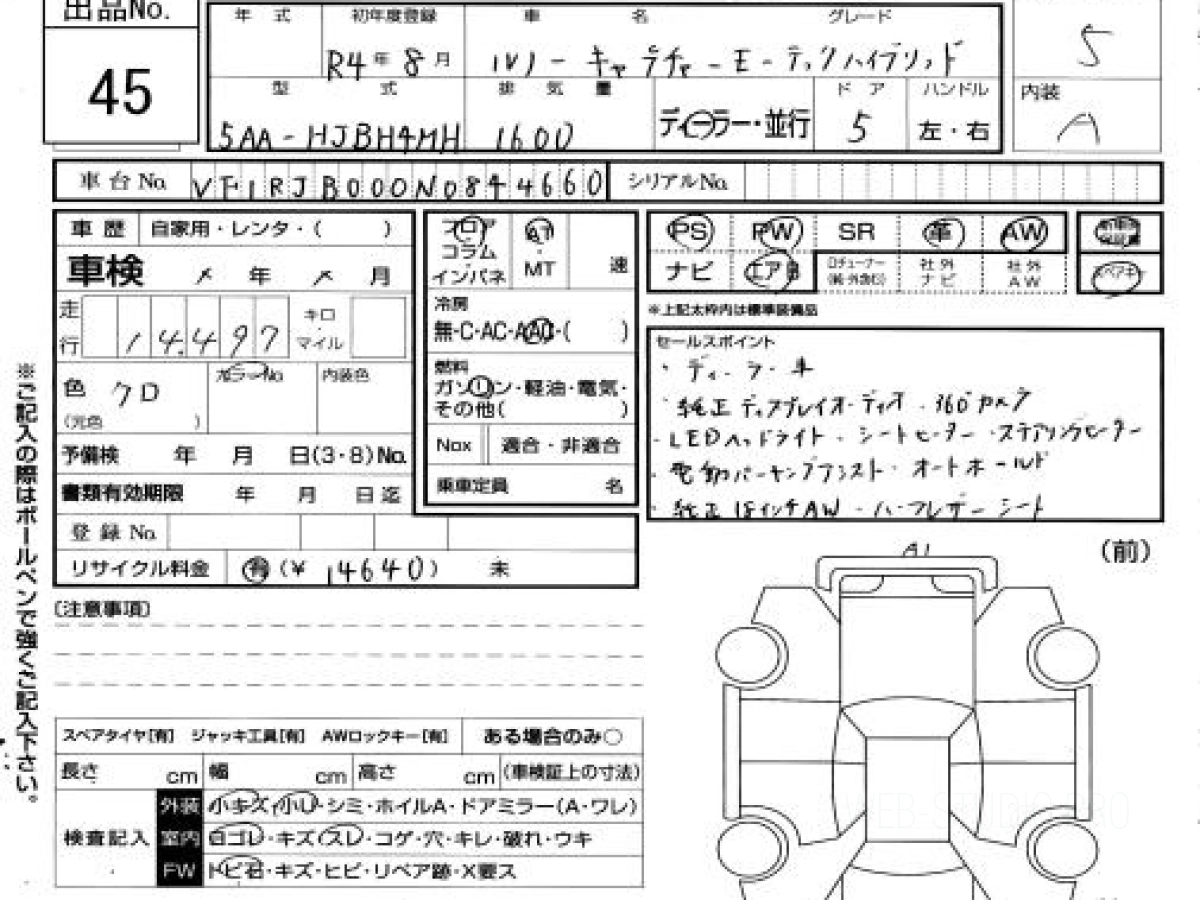 出品No.
45
年 式 初年度登録 車 名 グレード
R4年 8月 ルノーキャプチャーE-テックハイブリッド
5
型 式 排 気 量 ド ア ハンドル 内装
5AA-HJBH4MH 1600 ディーラー・並行 5 左・右 A
車台No. VF1RJB000N0844660 シリアルNo.
車歴 自家用・レンタ・( )
車検 年 月
走行 14,497 キロ・マイル
色 クロ カラーNo 内装色
(元色 )
予備検 年 月 日(3・8)No.
書類有効期限 年 月 日迄
登録No.
リサイクル料金 有 (¥ 14640) 未
フロア AT
コラム ・ 速
インパネ MT
冷房
無・C・AC・AAC・( )
燃料
ガソリン・軽油・電気・
その他( )
Nox 適合・非適合
乗車定員 名
PS PW SR 革 AW 新車時保証書
ナビ エアB 社外ナビ 社外AW スペアキー
※上記太枠内は標準装備品
セールスポイント
・ディーラー車
・純正ディスプレイオーディオ・360°カメラ
・LEDヘッドライト・シートヒーター・ステアリングヒーター
・電動パーキングアシスト・オートホールド
・純正18インチAW・ハーフレザーシート
※ご記入の際はボールペンで強くご記入下さい。
(注意事項)
A1
(前)
スペアタイヤ[有] ジャッキ工具[有] AWロックキー[有] ある場合のみ○
長さ cm 幅 cm 高さ cm (車検証上の寸法)
検査記入
外装 小キズ・小U・シミ・ホイルA・ドアミラー(A・ワレ)
室内 白ゴレ・キズ・スレ・コゲ・穴・キレ・破れ・ウキ
FW トビ石・キズ・ヒビ・リペア跡・X要ス